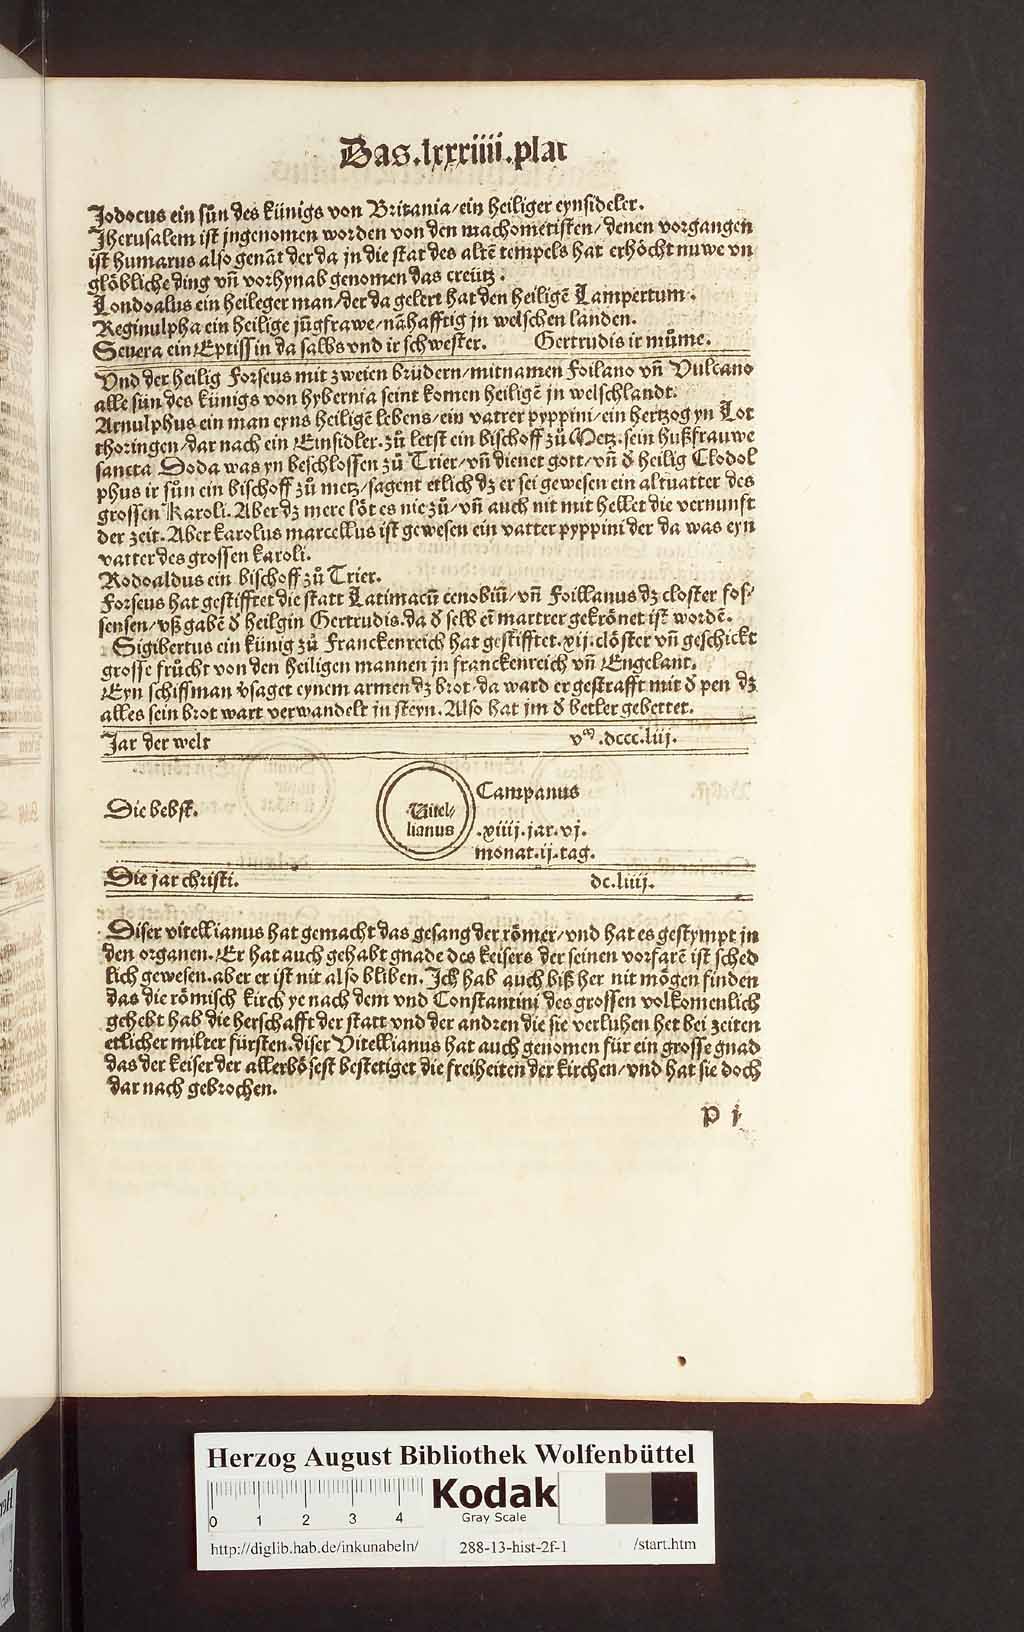 Das.lxxxiiii.plat
Jodocus ein sůn des künigs von Britania/ein heiliger eynsideler.
Jherusalem ist jngenomen worden von den machometisten/denen vorgangen
ist humarus also genāt der da jn die stat des altē tempels hat erhöcht nuwe vn
glöbliche ding vñ vorhynab genomen das creütz.
Londoalus ein heileger man/der da gelert hat den heiligē Lampertum.
Reginulpha ein heilige jūgfrawe/nāhafftig jn welschen landen.
Severa ein Eptissin da salbs vnd ir schwester. Gertrudis ir můme.
Vnd der heilig Forseus mit zweien brüdern/mitnamen Foilano vñ Vulcano
alle sün des künigs von hybernia seint komen heiligē jn welschlandt.
Arnulphus ein man eyns heiligē lebens/ein vatrer pyppini/ein hertzog yn Lot
thoringen/dar nach ein Einsidler.zů letst ein bischoff zů Metz.sein hußfrauwe
sancta Doda was yn beschlossen zů Trier/vñ dienet gott/vñ d̄ heilig Clodol
phus ir sůn ein bischoff zů metz/sagent etlich dz er sei gewesen ein altuatter des
grossen Karoli.Aber dz mere löt es nie zů/vñ auch nit mit hellet die vernunft
der zeit.Aber karolus marcellus ist gewesen ein vatter pyppini der da was eyn
vatter des grossen karoli.
Rodoaldus ein bischoff zů Trier.
Forseus hat gestifftet die statt Latimacū cenobiū/vñ Foillanus dz closter fos/
sensen/vß gabē d̄ heilgin Gertrudis.da d̄ selb eī martrer gekrönet ist wordē.
Sigibertus ein künig zů Franckenreich hat gestifftet.xij.clöster vñ geschickt
grosse frůcht von den heiligen mannen jn franckenreich vñ Engelant.
Eyn schiffman v̄saget eynem armen dz brot/da ward er gestrafft mit d̄ pen dz
alles sein brot wart verwandelt jn steyn.Also hat jm d̄ betler gebettet.
Jar der welt vᵐ.dccc.liij.
Die bebst.
Vitel-
lianus
Campanus
.xiiij.jar.vj.
monat.ij.tag.
Die jar christi. dc.liiij.
Diser vitellianus hat gemacht das gesang der römer/vnd hat es gestympt jn
den organen.Er hat auch gehabt gnade des keisers der seinen vorfarē ist sched
lich gewesen.aber er ist nit also bliben.Ich hab auch biß her nit mögen finden
das die römisch kirch ye nach dem vnd Constantinj des grossen volkomenlich
gehebt hab die herschafft der statt vnd der andren die sie verluhen het bei zeiten
etlicher milter fürsten.diser Vitellianus hat auch genomen für ein grosse gnad
das der keiser der allerbözest bestetiget die freiheiten der kirchen/vnd hat sie doch
dar nach gebrochen.
p j
Herzog August Bibliothek Wolfenbüttel
0 1 2 3 4
Kodak
Gray Scale
http://diglib.hab.de/inkunabeln/ 288-13-hist-2f-1 /start.htm